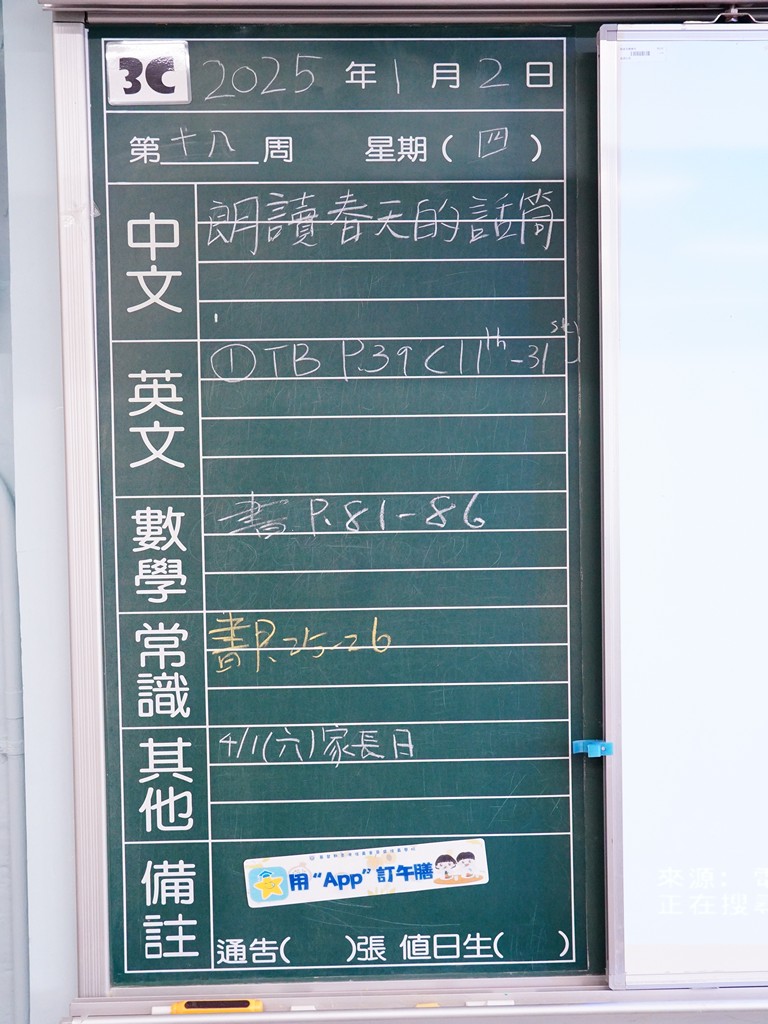 3C 2025 年 1 月 2 日
第 十八 周 星期 ( 四 )
中文 朗讀春天的話筒
英文 ① TB P.39 (11th-31st)
數學 書 P.81-86
常識 書P.25-26
其他 4/1(六)家長日
備註
用“App”訂午膳
通告( )張 值日生( )
來源:
正在搜尋